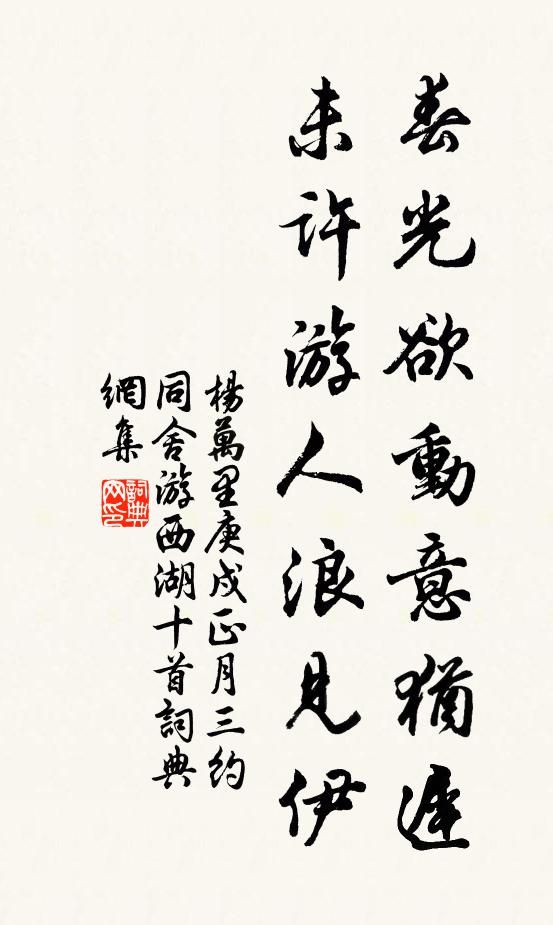 春光欲動意猶遲
未許游人浪見伊
楊萬里庚戌正月三約
同舍游西湖十首詞典
網集
詞典
网印